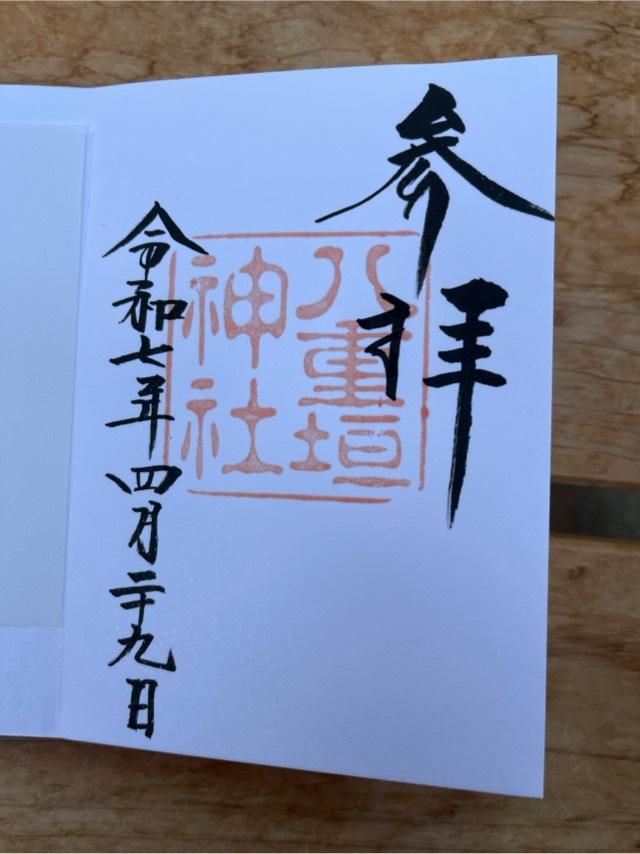 参拝
八重垣
神社
令和七年四月二十九日